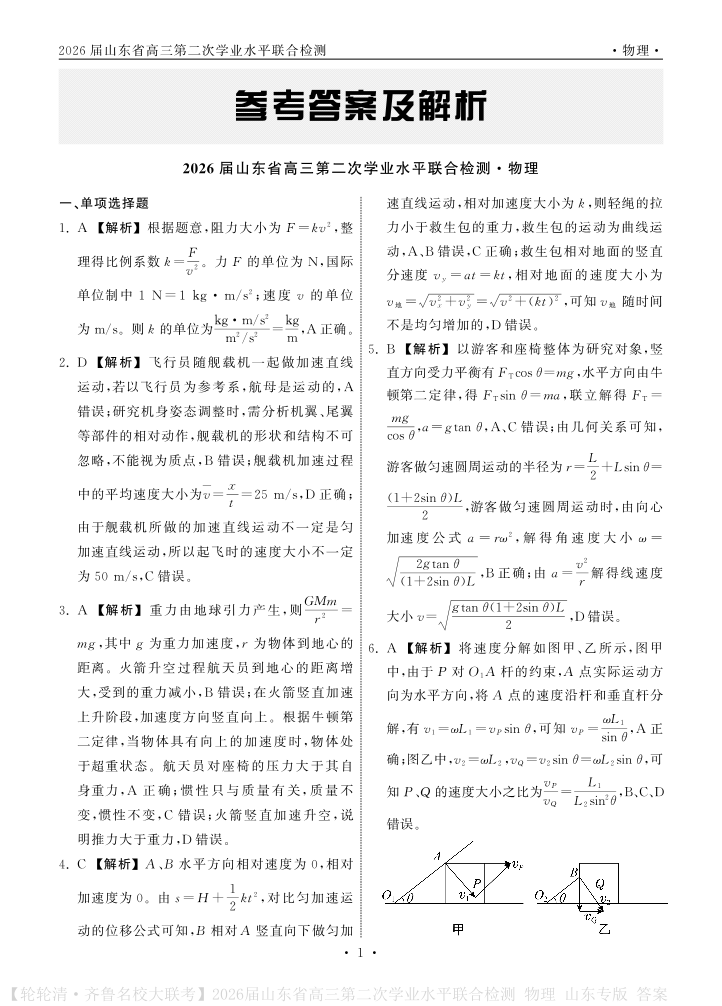 2026 届山东省高三第二次学业水平联合检测
·物理·
参考答案及解析
2026 届山东省高三第二次学业水平联合检测·物理
一、单项选择题
1. A 【解析】根据题意,阻力大小为 F=kv²,整
理得比例系数 k=F/v²。力 F 的单位为 N,国际
单位制中 1 N=1 kg·m/s²;速度 v 的单位
为 m/s。则 k 的单位为(kg·m/s²)/(m²/s²)=kg/m,A 正确。
2. D 【解析】飞行员随舰载机一起做加速直线
运动,若以飞行员为参考系,航母是运动的,A
错误;研究机身姿态调整时,需分析机翼、尾翼
等部件的相对动作,舰载机的形状和结构不可
忽略,不能视为质点,B 错误;舰载机加速过程
中的平均速度大小为v̄=x/t=25 m/s,D 正确;
由于舰载机所做的加速直线运动不一定是匀
加速直线运动,所以起飞时的速度大小不一定
为 50 m/s,C 错误。
3. A 【解析】重力由地球引力产生,则GMm/r²=
mg,其中 g 为重力加速度,r 为物体到地心的
距离。火箭升空过程航天员到地心的距离增
大,受到的重力减小,B 错误;在火箭竖直加速
上升阶段,加速度方向竖直向上。根据牛顿第
二定律,当物体具有向上的加速度时,物体处
于超重状态。航天员对座椅的压力大于其自
身重力,A 正确;惯性只与质量有关,质量不
变,惯性不变,C 错误;火箭竖直加速升空,说
明推力大于重力,D 错误。
4. C 【解析】A、B 水平方向相对速度为 0,相对
加速度为 0。由 s=H+1/2kt²,对比匀加速运
动的位移公式可知,B 相对 A 竖直向下做匀加
速直线运动,相对加速度大小为 k,则轻绳的拉
力小于救生包的重力,救生包的运动为曲线运
动,A、B 错误,C 正确;救生包相对地面的竖直
分速度 v_y=at=kt,相对地面的速度大小为
v地=√(v_x²+v_y²)=√(v²+(kt)²),可知 v地 随时间
不是均匀增加的,D 错误。
5. B 【解析】以游客和座椅整体为研究对象,竖
直方向受力平衡有 F_Tcos θ=mg,水平方向由牛
顿第二定律,得 F_Tsin θ=ma,联立解得 F_T=
mg/cos θ,a=gtan θ,A、C 错误;由几何关系可知,
游客做匀速圆周运动的半径为 r=L/2+Lsin θ=
(1+2sin θ)L/2,游客做匀速圆周运动时,由向心
加速度公式 a=rω²,解得角速度大小 ω=
√(2gtan θ/((1+2sin θ)L)),B 正确;由 a=v²/r 解得线速度
大小 v=√(gtan θ(1+2sin θ)L/2),D 错误。
6. A 【解析】将速度分解如图甲、乙所示,图甲
中,由于 P 对 O₁A 杆的约束,A 点实际运动方
向为水平方向,将 A 点的速度沿杆和垂直杆分
解,有 v₁=ωL₁=v_P sin θ,可知 v_P=ωL₁/sin θ,A 正
确;图乙中,v₂=ωL₂,v_Q=v₂sin θ=ωL₂sin θ,可
知 P、Q 的速度大小之比为v_P/v_Q=L₁/(L₂sin²θ),B、C、D
错误。
A
v_P
P
v₁
O₁
θ
甲
B
Q
O₂
θ
v₂
v_Q
乙
·1·
【轮轮清·齐鲁名校大联考】2026届山东省高三第二次学业水平联合检测 物理 山东专版 答案